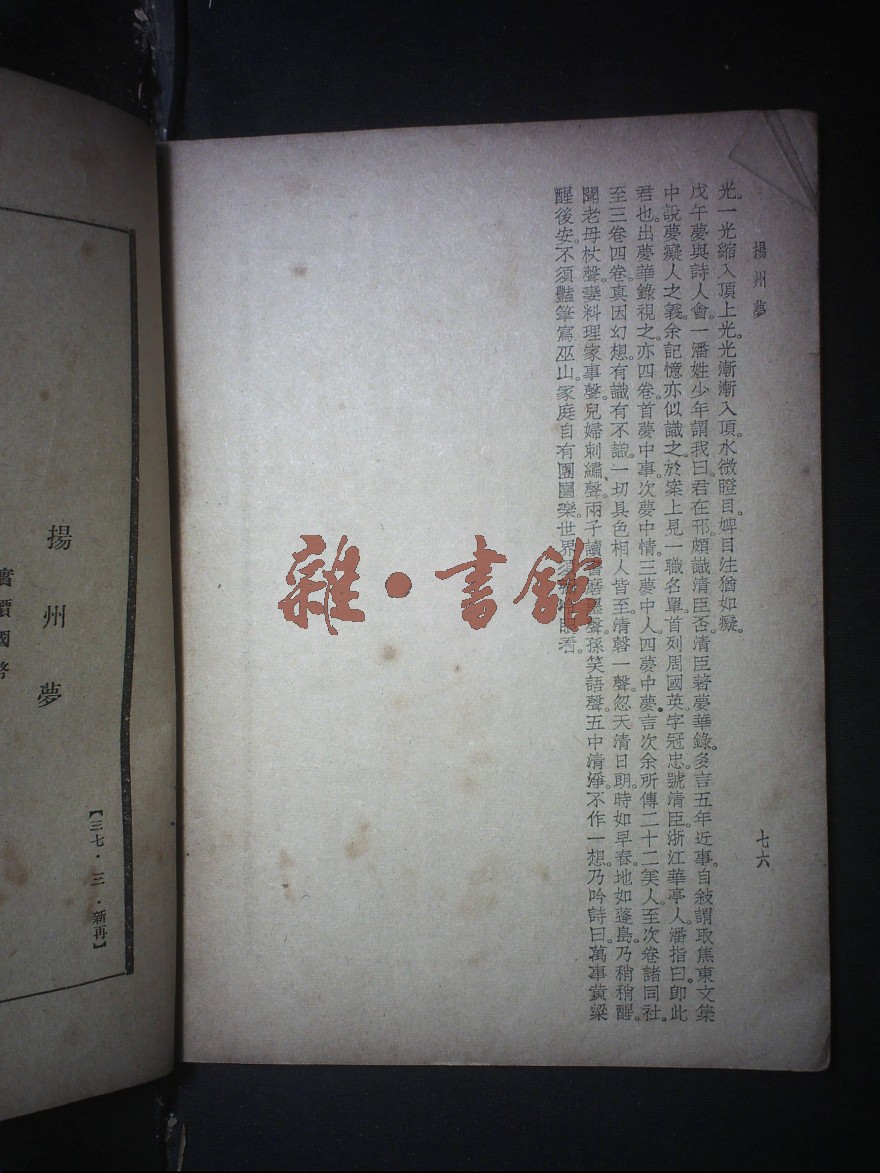 揚州夢
七六
光。一光縮入頂上光。光漸漸入頂。水微瞪目。婢目注猶如癡。
戊午夢與詩人會。一潘姓少年謂我曰。君在邗頗識清臣否。清臣著夢華錄。多言五年近事。自敍謂取焦東文集
中說夢癡人之義。余記憶亦似識之。於案上見一職名單。首列周國英字冠忠。號清臣。浙江華亭人。潘指曰。卽此
君也。出夢華錄視之。亦四卷。首夢中事。次夢中情。三夢中人。四夢中夢。言次余所傳二十二美人至。次卷諸同社。
至三卷四卷。真因幻想。有識有不識。一切具色相人皆至。清磬一聲。忽天清日朗。時如早春。地如蓬島。乃稍稍醒。
聞老母杖聲。妻料理家事聲。兒婦刺繡聲。兩子讀書磨墨聲。孫笑語聲。五中清淨。不作一想。乃吟詩曰。萬事黃粱
醒後安。不須豔筆寫巫山。家庭自有團圞樂。世界須 眼看。
雜·書館
揚州夢
實價國幣
【三七·三·新再】